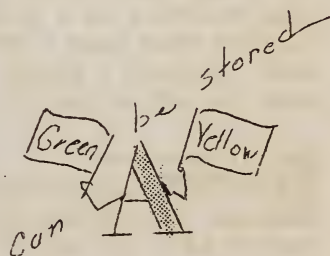 can be stored
Green
A
Yellow